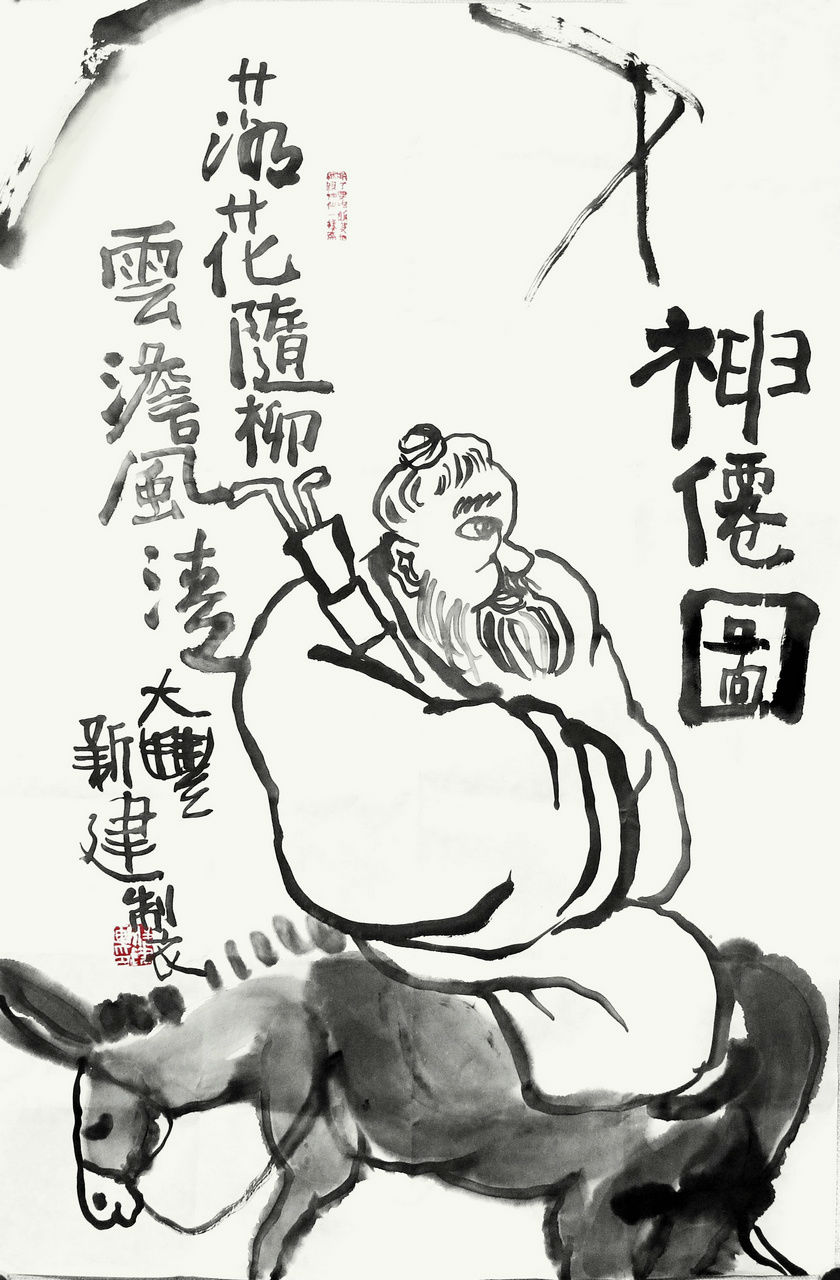 神僊圖
落花隨柳
雲澹風清
大豐
新建製